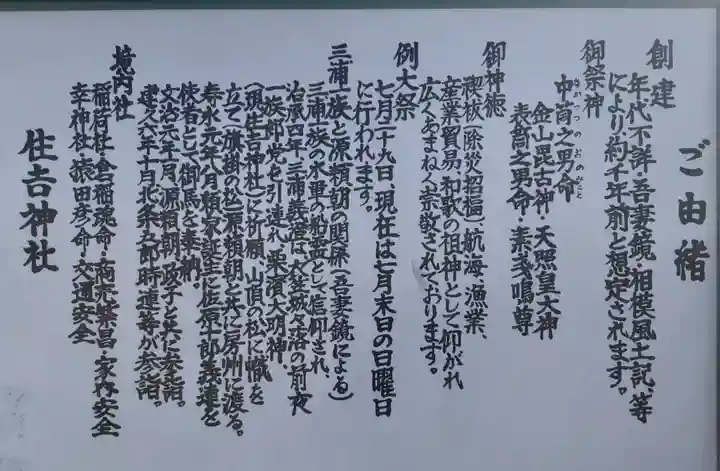 ご由緒
創建
年代不詳・吾妻鏡・相模風土記、等
により約千年前と想定されます。
御祭神
中筒之男命
なかつつのおのみこと
金山毘古神・天照皇大神
表筒之男命・素戔鳴尊
御神徳
禊祓(除災招福)航海、漁業、
産業貿易、和歌の祖神として仰がれ
広くあまねく崇敬されております。
例大祭
七月二十九日、現在は七月末日の日曜日
に行われます。
三浦一族と源頼朝の関係(吾妻鏡による)
三浦一族の水軍の船霊として信仰され、
治承四年、三浦義澄は、衣笠城々落の前夜
一族郎党を引連れ、栗濱大明神、
(現住吉神社)に祈願、山頂の松に幟を
立て(旗樹の松)源頼朝と共に房州に渡る。
寿永元年八月頼家誕生に佐原十郎義連を
使者として御馬を奉納。
文治元年一月、源頼朝、政子と共に参詣。
建久六年十月北条五郎時連等が参詣。
境内社
稲荷社・倉稲魂命・商売繁昌・家内安全
幸神社・猿田彦命・交通安全
住吉神社